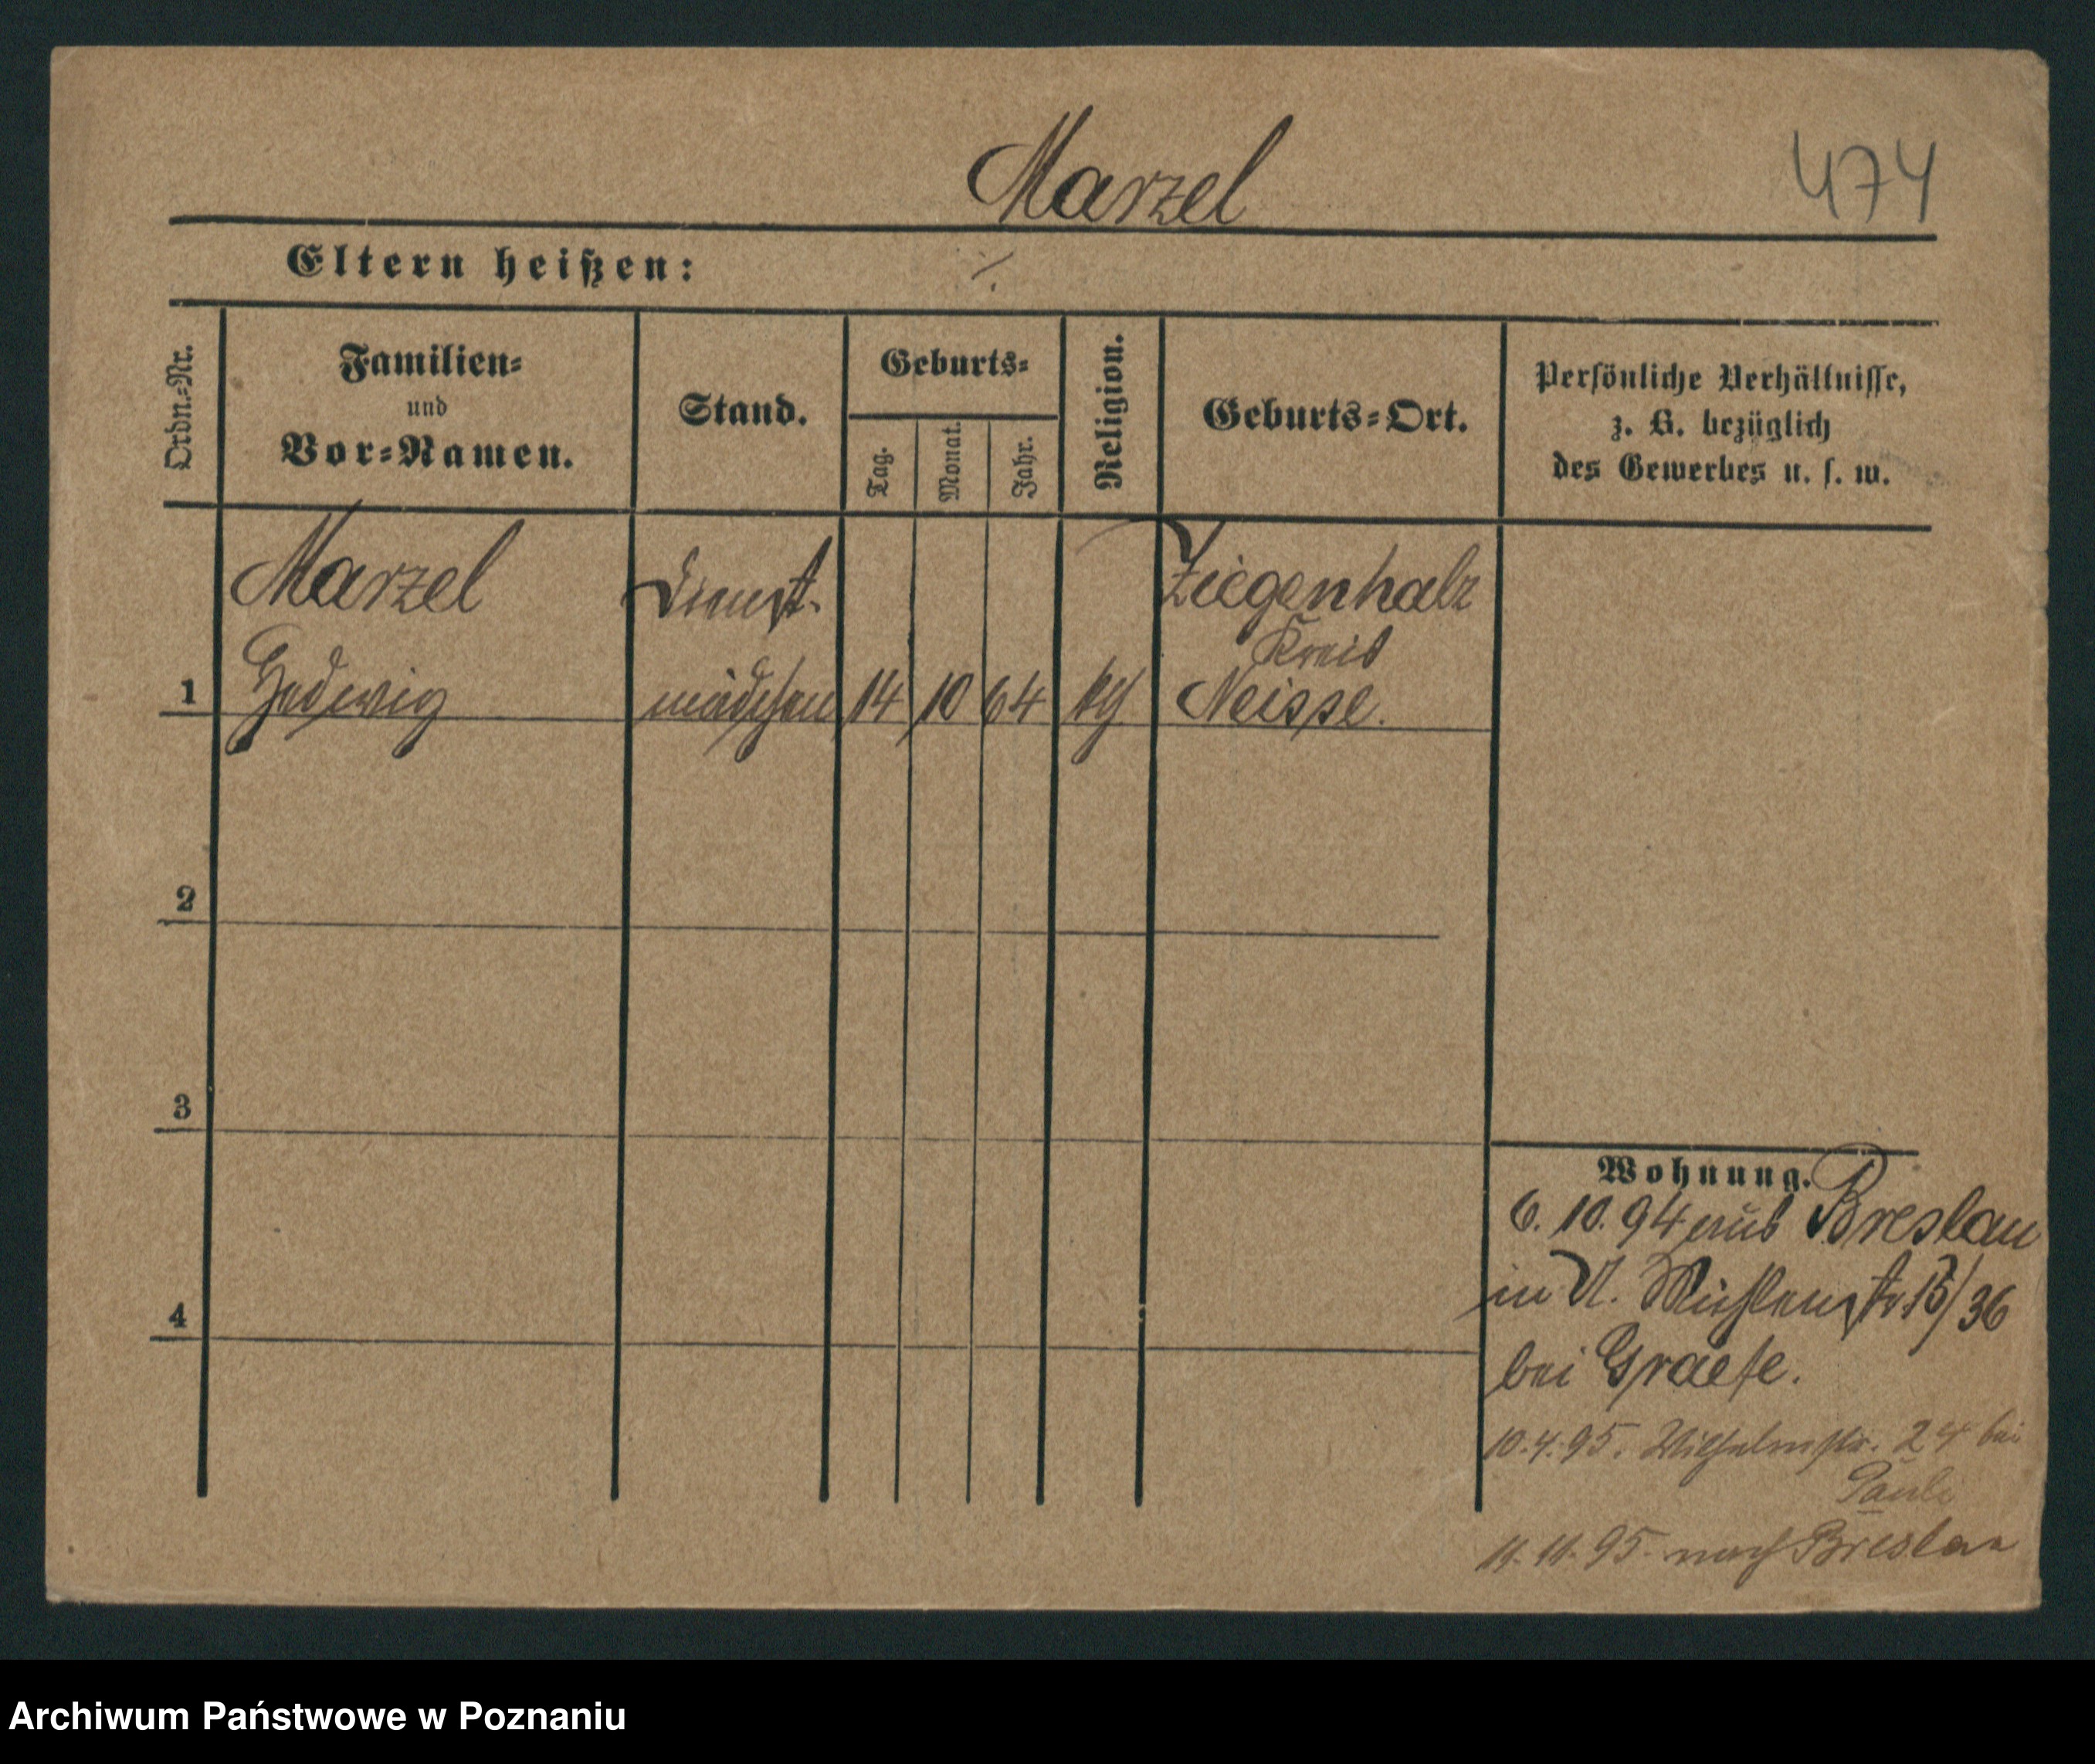 Marzel
474
Eltern heißen: ⁒
Ordn.-Nr.
Familien-
und
Vor-Namen.
Stand.
Geburts-
Tag.
Monat.
Jahr.
Religion.
Geburts-Ort.
Persönliche Verhältnisse,
z. B. bezüglich
des Gewerbes u. s. w.
Marzel Dienst- Ziegenhalz
Kreis
1 Hedwig mädchen 14 10 64 Neisse.
2
3
4
Wohnung.
6. 10. 94 aus Breslau
in Mühlenstr /36
bei Graefe.
10.4.95. Wilhelmstr. 24 bei
Pauli
11.11.95. nach Breslau
Archiwum Państwowe w Poznaniu